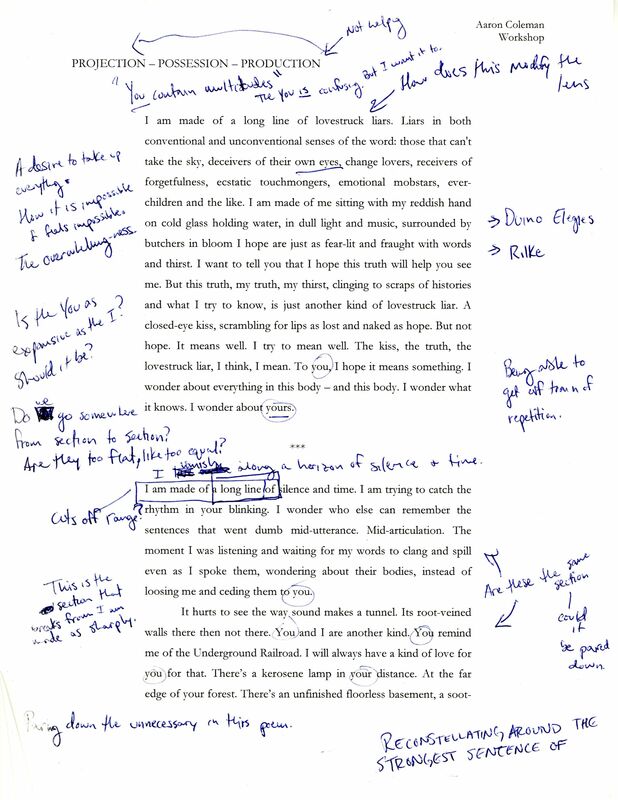 Not helpful
Aaron Coleman
Workshop
PROJECTION – POSSESSION – PRODUCTION
"You contain multitudes"
The You is confusing. But I want it to.
How does this modify the
lens
I am made of a long line of lovestruck liars. Liars in both
conventional and unconventional senses of the word: those that can't
take the sky, deceivers of their own eyes, change lovers, receivers of
forgetfulness, ecstatic touchmongers, emotional mobstars, ever-
children and the like. I am made of me sitting with my reddish hand
on cold glass holding water, in dull light and music, surrounded by
butchers in bloom I hope are just as fear-lit and fraught with words
and thirst. I want to tell you that I hope this truth will help you see
me. But this truth, my truth, my thirst, clinging to scraps of histories
and what I try to know, is just another kind of lovestruck liar. A
closed-eye kiss, scrambling for lips as lost and naked as hope. But not
hope. It means well. I try to mean well. The kiss, the truth, the
lovestruck liar, I think, I mean. To you, I hope it means something. I
wonder about everything in this body – and this body. I wonder what
it knows. I wonder about yours.
A desire to take up
everything.
How it is impossible
& feels impossible.
The overwhelming-ness.
→ Duino Elegies
→ Rilke
Is the You as
expansive as the I?
Should it be?
Being able to
get off train of
repetition.
Do we go somewhere
from section to section?
Are they too flat, like too equal?
***
I along a horizon of silence & time.
I am made of a long line of silence and time. I am trying to catch the
rhythm in your blinking. I wonder who else can remember the
sentences that went dumb mid-utterance. Mid-articulation. The
moment I was listening and waiting for my words to clang and spill
even as I spoke them, wondering about their bodies, instead of
loosing me and ceding them to you.
It hurts to see the way sound makes a tunnel. Its root-veined
walls there then not there. You and I are another kind. You remind
me of the Underground Railroad. I will always have a kind of love for
you for that. There's a kerosene lamp in your distance. At the far
edge of your forest. There's an unfinished floorless basement, a soot-
Cuts off range?
This is the
section that
breaks from I am
made as sharply.
Are these the same
section
could
it
be pared
down.
Paring down the unnecessary in this poem.
RECONSTELLATING AROUND THE
STRONGEST SENTENCE OF